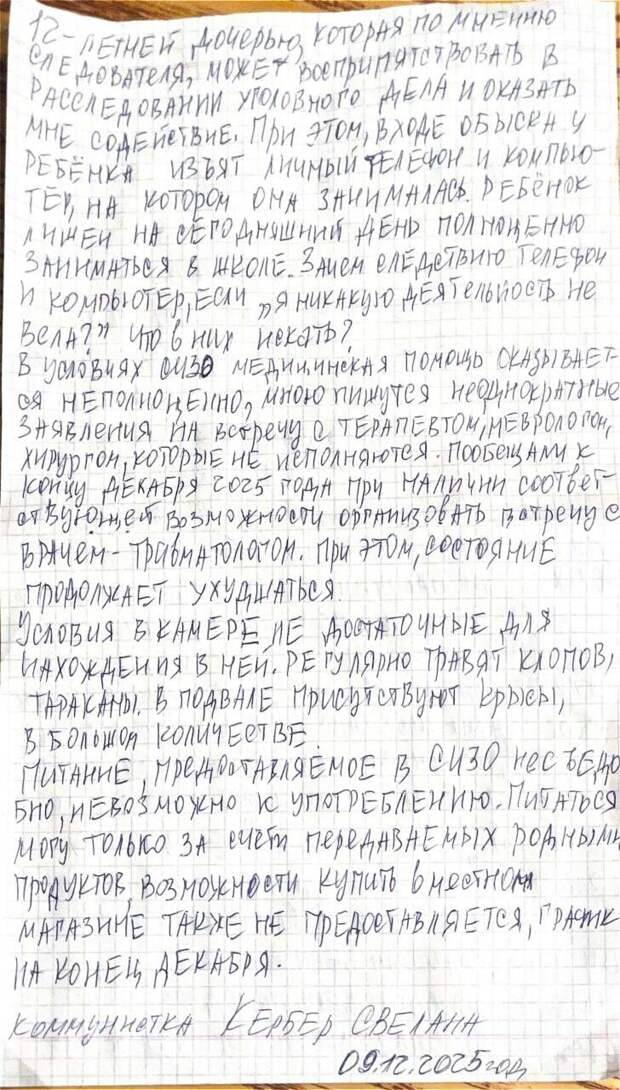 12-летней дочерью, которая по мнению
следователя, может восприпятствовать в
расследовании уголовного дела и оказать
мне содействие. При этом, входе обыска у
ребёнка изъят личный телефон и компью-
тер, на котором она занималась. Ребёнок
лишен на сегодняшний день полноценно
заниматься в школе. Зачем следствию телефон
и компьютер, если „я никакую деятельность не
вела?" Что в них искать?
В условиях СИЗО медицинская помощь оказывает-
ся неполноценно, мною пишутся неоднократные
заявления на встречу с терапевтом, неврологом,
хирургом, которые не исполняются. Пообещали к
концу декабря 2025 года при наличии соответ-
ствующей возможности организовать встречу с
врачем-травматологом. При этом, состояние
продолжает ухудшаться.
Условия в камере не достаточные для
нахождения в ней. Регулярно травят клопов,
тараканы. В подвале присутствуют крысы,
в большом количестве.
Питание, предоставляемое в СИЗО несъедо
бно, невозможно к употреблению. Питаться
могу только за счёт передаваемых родными
продуктов, возможности купить в местном
магазине также не предоставляется, график
на конец декабря.
Коммунистка Кербер Свелана
09.12.2025 год